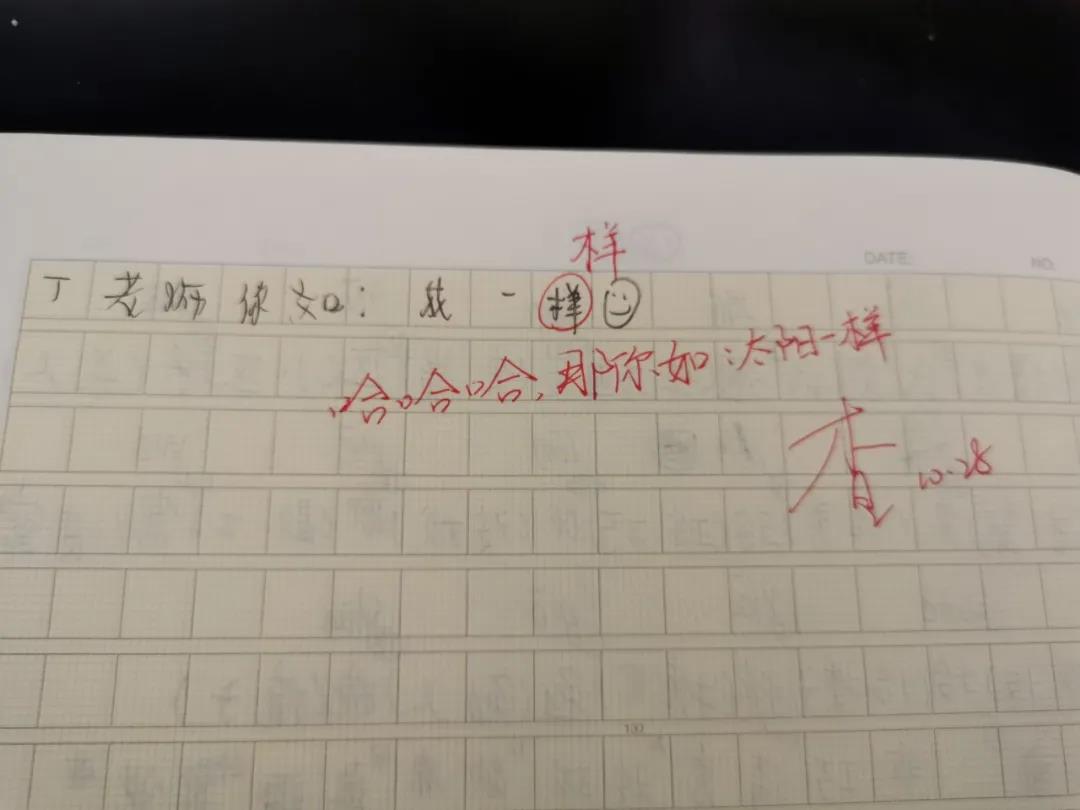 样
DATE: NO.
丁老师你如: 我一样
哈哈哈, 那你如:太阳一样
查 10.28
100